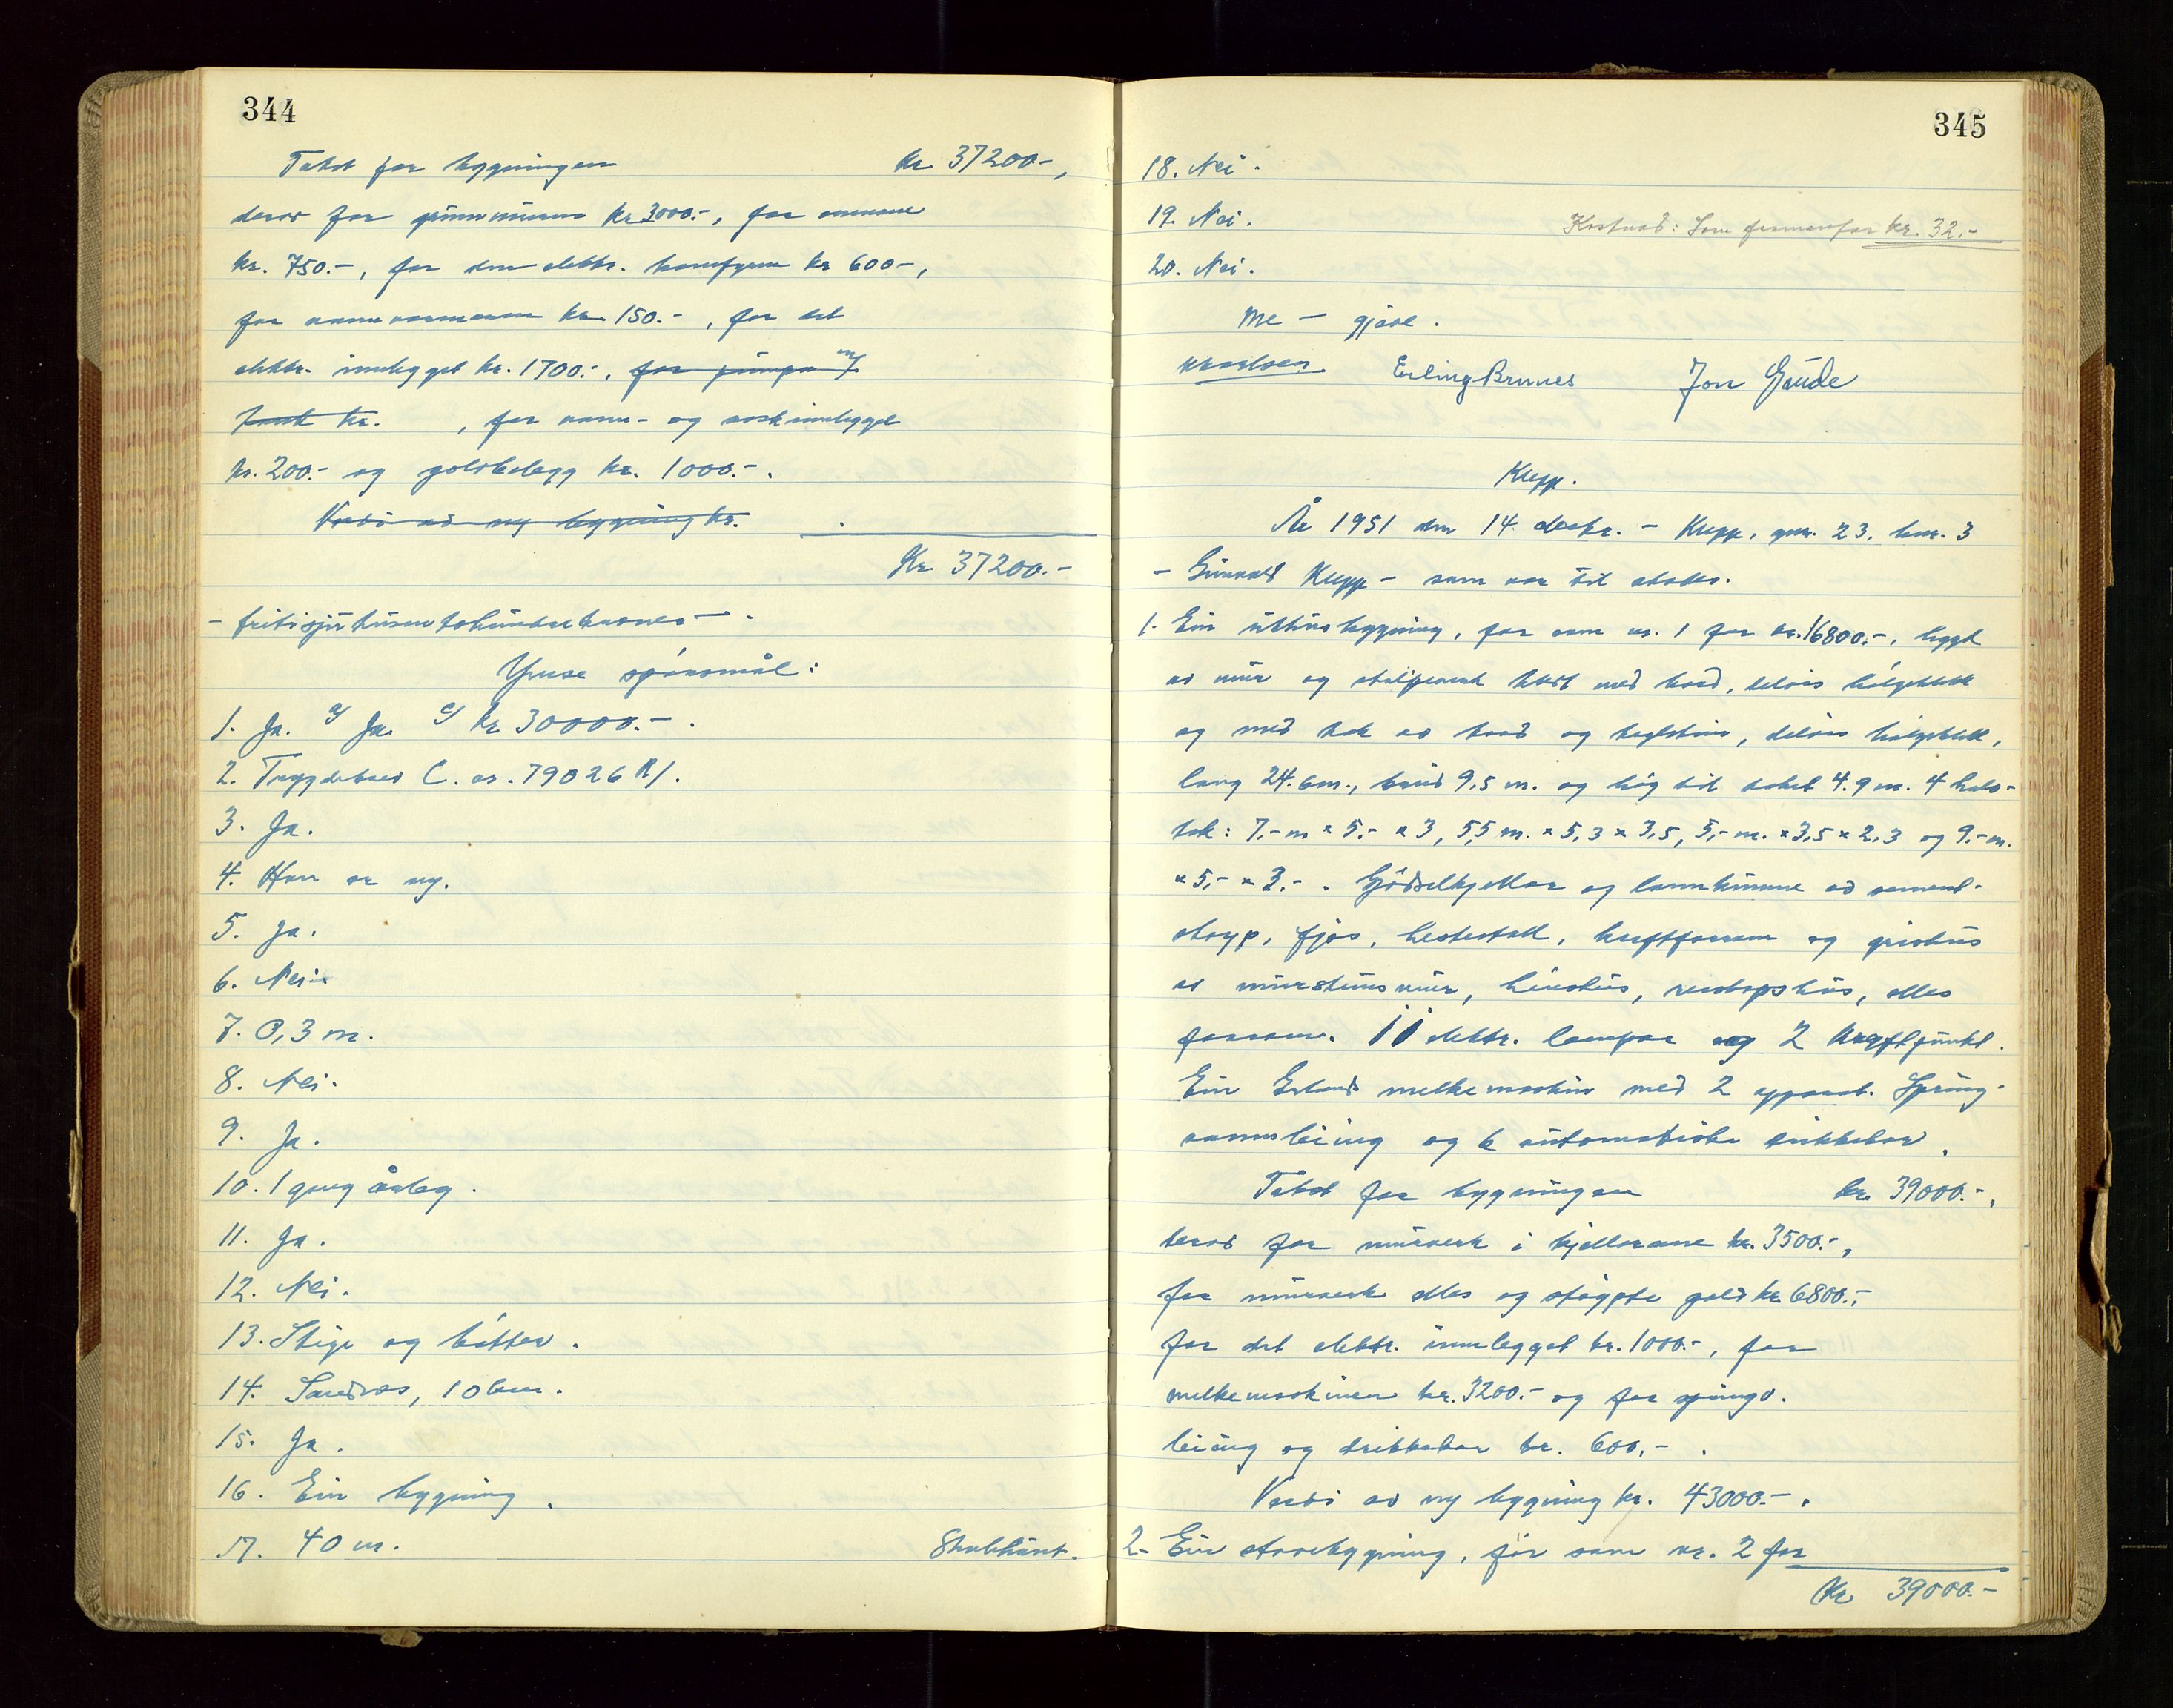 344
Takst for bygningen kr 37200.-,
derav for grunnmuren kr 3000.-, for omnane
kr. 750.-, for den elektr. komfyren kr 600.-,
for vannvarmaren kr 150.-, for det
elektr. innlegget kr. 1700.-, for pumpa m/
tank kr. , for vann- og vaskinnlegget
kr. 200.- og golvbelegg kr. 1000.-.
Verdi av ny bygning kr. .
Kr 37200.-
- tritisjutusentohundrekroner - .
Ymse spörsmål:
1. Ja. b/ Ja c/ kr 30000.- .
2. Trygdebrev C. nr. 79026 R/.
3. Ja.
4. Han er ny.
5. Ja.
6. Nei.
7. 0,3 m.
8. Nei.
9. Ja.
10. 1 gang årleg.
11. Ja.
12. Nei.
13. Stige og bötter.
14. Sandnes, 10 km.
15. Ja.
16. Ein bygning.
17. 40 m. Skulehust.
345
18. Nei.
19. Nei.
Kostnad: Som framanfor kr. 32.-
20. Nei.
Me - gjeve.
Erling Brunes Jon Gaude
Klepp.
År 1951 den 14. desbr. - Klepp, gnr. 23, bnr. 3
- Gunvald Klepp - som var til stades.
1. Ein uthusbygning, för som nr. 1 for kr. 16800.-, bygd
av mur og stolpeverk kledt med bord, delvis bölgeblekk
og med tak av bord og teglstein, delvis bölgeblekk,
lang 24.6 m., breid 9,5 m. og høg til taket 4.9 m. 4 halv-
tak: 7.- m × 5.- × 3, 5,5 m. × 5,3 × 3,5, 5,- m. × 3,5 × 2,3 og 9.- m.
× 5,- × 3.- . Gjödselkjellar og lannkumme av sement-
støyp, fjøs, hestestall, kraftforrom og grishus
av mursteinsmur, hønehus, reiskapshus, elles
forrom. 11 elektr. lampor og 2 kraftpunkt.
Ein Erlands melkemaskin med 2 apparat. Spring-
vannsleiing og 6 automatiske drikkekar.
Takst for bygningen kr. 39000.-,
derav for murverk i kjellarane kr. 3500.-,
for murverk elles og stöypte golv kr 6800.-,
for det elektr. innlegget kr. 1000.-, for
melkemaskinen kr. 3200.- og for springv.
leiing og drikkekar kr. 600,- .
Verdi av ny bygning kr. 43000.- .
2. Ein stovebygning, för som nr. 2 for
Kr 39000.-